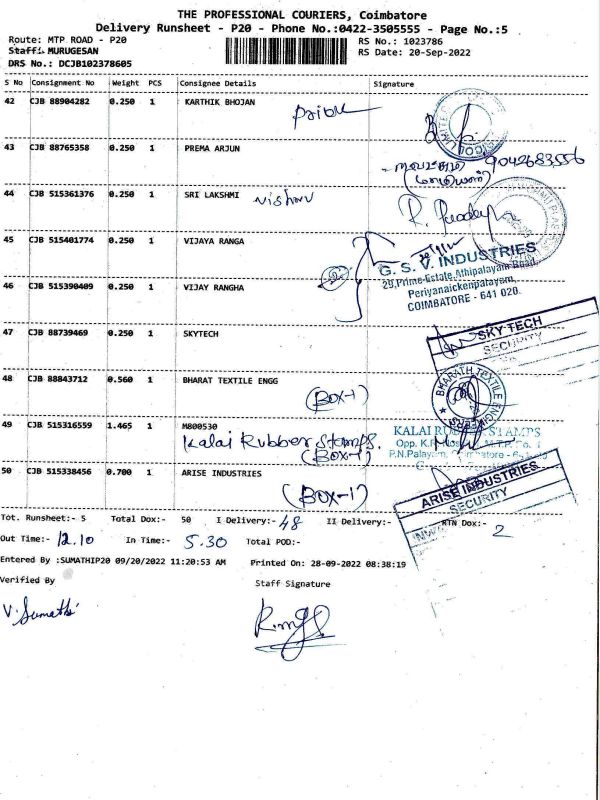 THE PROFESSIONAL COURIERS, Coimbatore
Delivery Runsheet - P20 - Phone No.:0422-3505555 - Page No.:5
Route: MTP ROAD - P20
RS No.: 1023786
Staff: MURUGESAN
RS Date: 20-Sep-2022
DRS No.: DCJB102378605
S No Consignment No Weight PCS Consignee Details Signature
42 CJB 88904282 0.250 1 KARTHIK BHOJAN
43 CJB 88765358 0.250 1 PREMA ARJUN
9042683556
44 CJB 515361376 0.250 1 SRI LAKSHMI
45 CJB 515401774 0.250 1 VIJAYA RANGA
G. S. V. INDUSTRIES
29, Prime Estate, Athipalayam Road,
Periyanaickenpalayam,
COIMBATORE - 641 020.
46 CJB 515390409 0.250 1 VIJAY RANGHA
47 CJB 88739469 0.250 1 SKYTECH
SKY TECH
SECURITY
48 CJB 88843712 0.560 1 BHARAT TEXTILE ENGG
(BOX-1)
BHARATH TEXTILE ENGINEERS
49 CJB 515316559 1.465 1 M800530
Kalai Rubber Stamps.
(BOX-1)
KALAI RUBBER STAMPS
50 CJB 515338456 0.700 1 ARISE INDUSTRIES
(BOX-1)
ARISE INDUSTRIES
SECURITY
Tot. Runsheet:- 5 Total Dox:- 50 I Delivery:- 48 II Delivery:- RTN Dox:- 2
Out Time:- 12.10 In Time:- 5.30 Total POD:-
Entered By :SUMATHIP20 09/20/2022 11:20:53 AM Printed On: 28-09-2022 08:38:19
Verified By Staff Signature
V. Sumathi